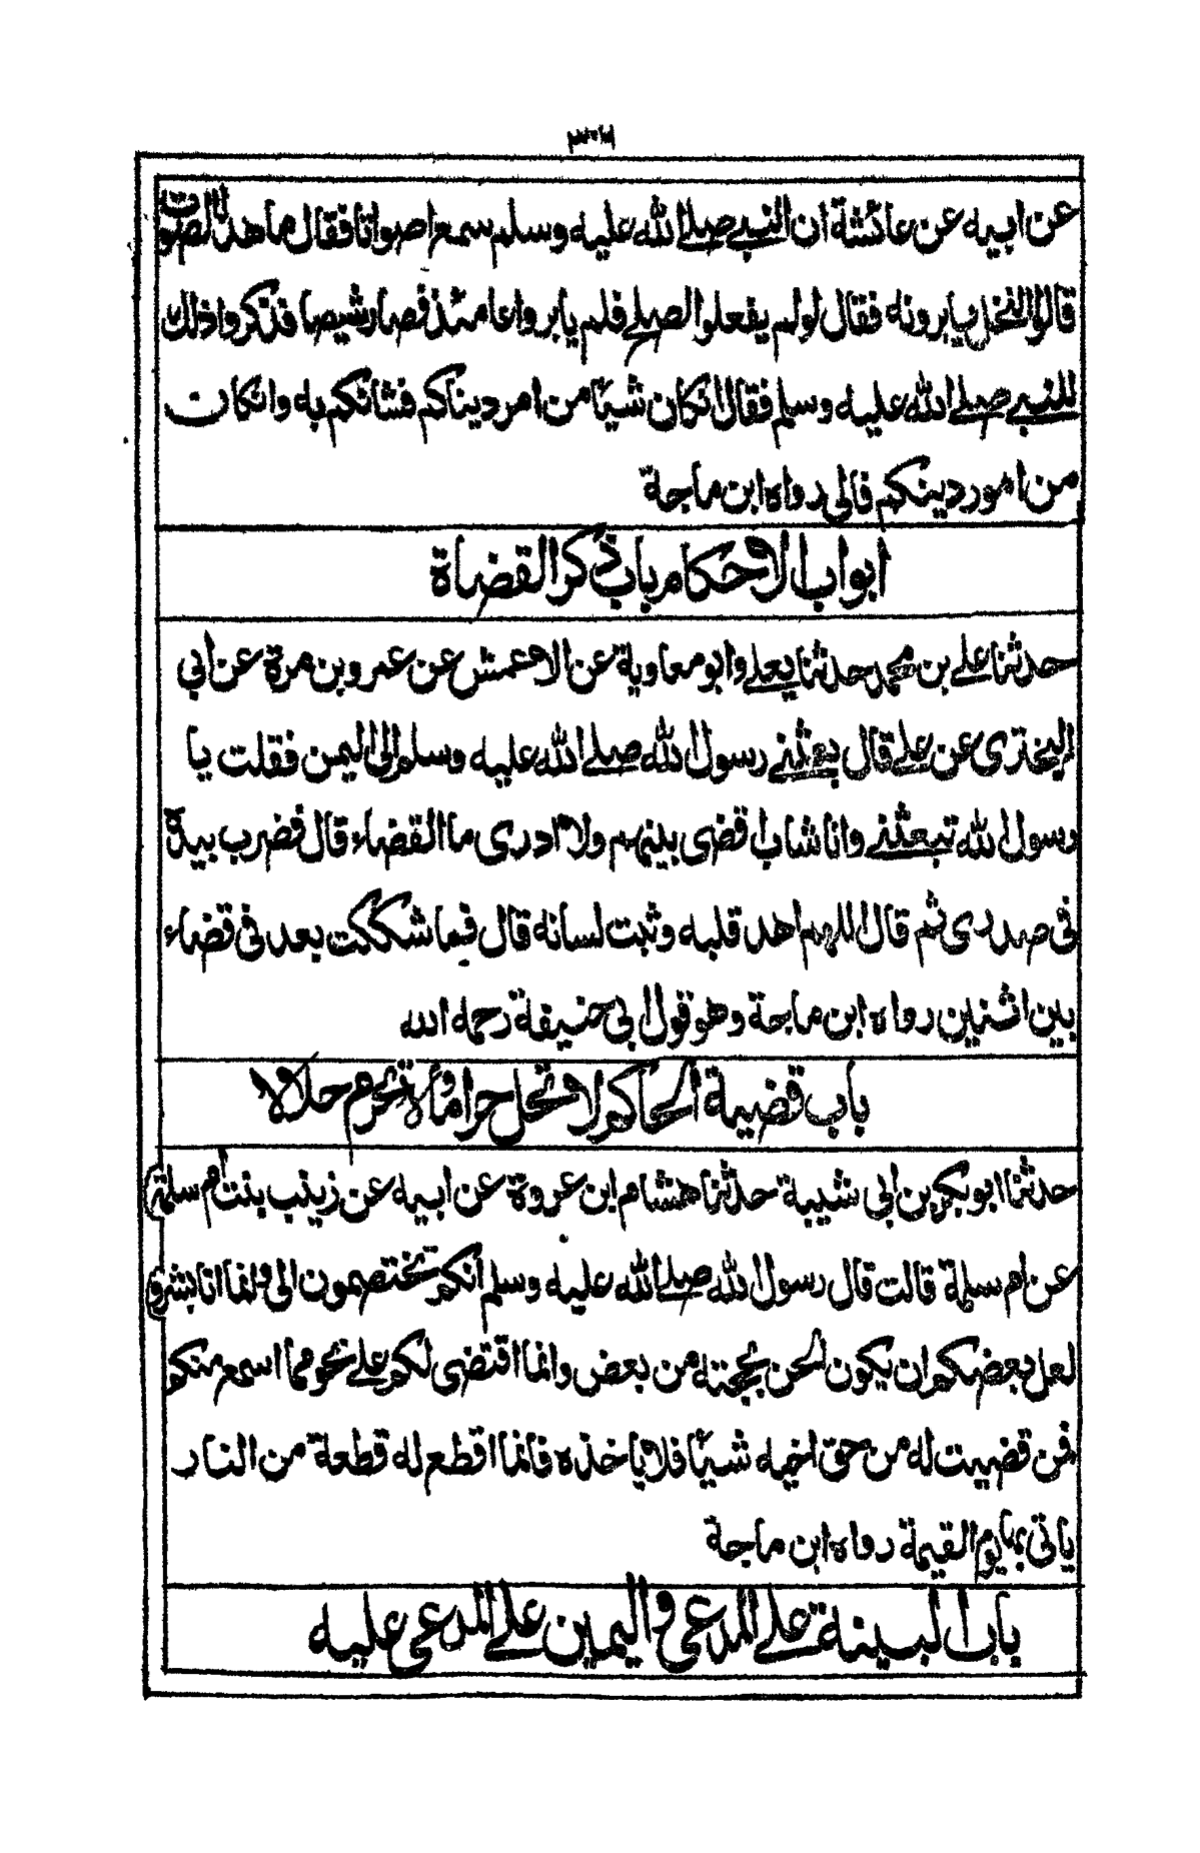 ٣٠٢
عن ابيه عن عائشة ان النبي صلے الله عليه وسلم سمع اصواتا فقال ما هذا الصوت
قالوا النخل يابرونه فقال لو لم يفعلوا لصلح فلم يابروا عامئذ فصار شيصا فذكروا ذلك
للنبي صلے الله عليه وسلم فقال ان كان شيئا من امر ديناكم فشانكم به وان كان
من امور دينكم فالى رواه ابن ماجة
ابواب الاحكام باب ذكر القضاة
حدثنا علي بن محمد حدثنا يعلے وابو معاوية عن الاعمش عن عمرو بن مرة عن ابي
البختري عن علي قال بعثنے رسول الله صلے الله عليه وسلم الى اليمن فقلت يا
رسول الله تبعثنے وانا شاب اقضى بينهم ولا ادرى ما القضاء قال فضرب بيده
فى صدرى ثم قال اللهم اهد قلبه وثبت لسانه قال فما شككت بعد فى قضاء
بين اثنين رواه ابن ماجة وهو قول ابى حنيفة رحمه الله
باب قضية الحاكم لا تحل حراما ولا تحرم حلالا
حدثنا ابو بكر بن ابى شيبة حدثنا هشام ابن عروة عن ابيه عن زينب بنت ام سلمة
عن ام سلمة قالت قال رسول الله صلے الله عليه وسلم انكم تختصمون الى وانما انا بشر و
لعل بعضكم ان يكون الحن بحجته من بعض وانما اقتضى لكم علے نحو مما اسمع منكم
فمن قضيت له من حق اخيه شيئا فلا ياخذه فانما اقطع له قطعة من النار
ياتى بها يوم القيمة رواه ابن ماجة
باب البينة علے المدعى واليمين علے المدعى عليه